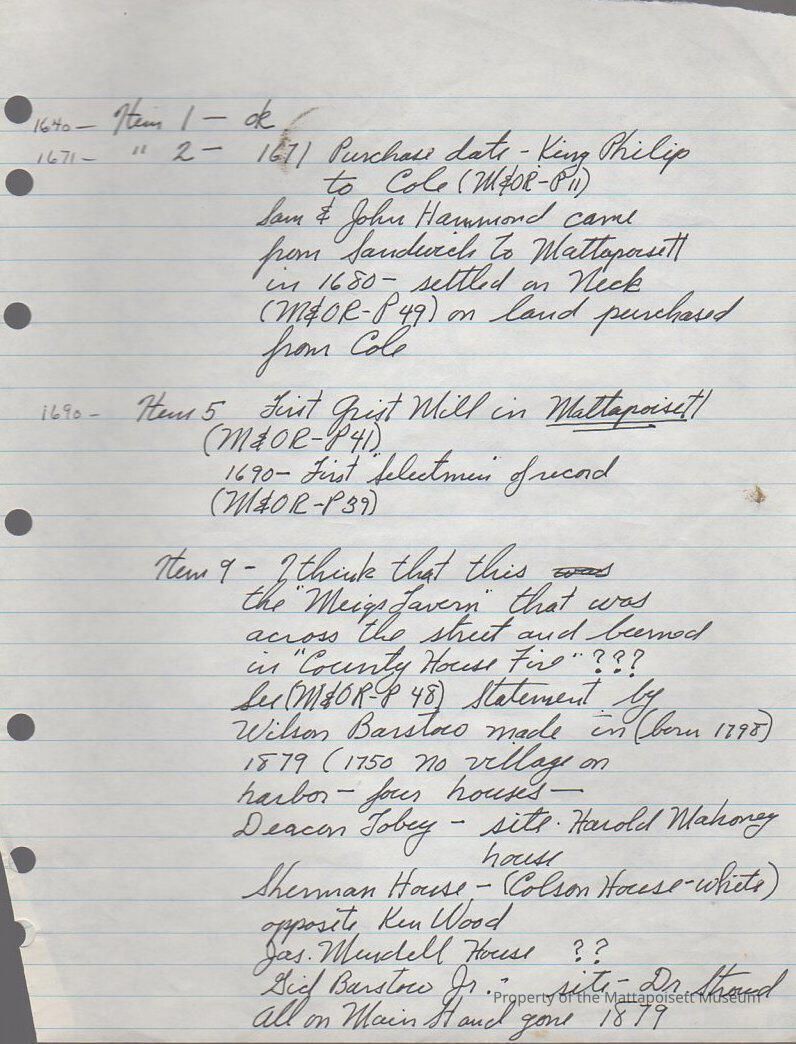 1640 — Item 1 — ok
1671 — " 2 — 1671 Purchase date - King Philip
to Cole (M&OR-P11)
Sam & John Hammond came
from Sandwich to Mattapoisett
in 1680 - settled on Neck
(M&OR-P 49) on land purchased
from Cole
1690 - Item 5 First Grist Mill in Mattapoisett
(M&OR-P41)
1690 - First "Selectmen" of record
(M&OR-P39)
Item 9 - I think that this was
the "Meigs Tavern" that was
across the street and burned
in "County House Fire" ???
See (M&OR-P 48) Statement by
Wilson Barstow made in (born 1798)
1879 (1750 no village on
harbor - four houses —
Deacon Tobey - site. Harold Mahoney
house
Sherman House - (Colson House-white)
opposite Ken Wood
Jas. Mendell House ??
Gid Barstow Jr. - site - Dr. Stroud
All on Main St and gone 1879
Property of the Mattapoisett Museum